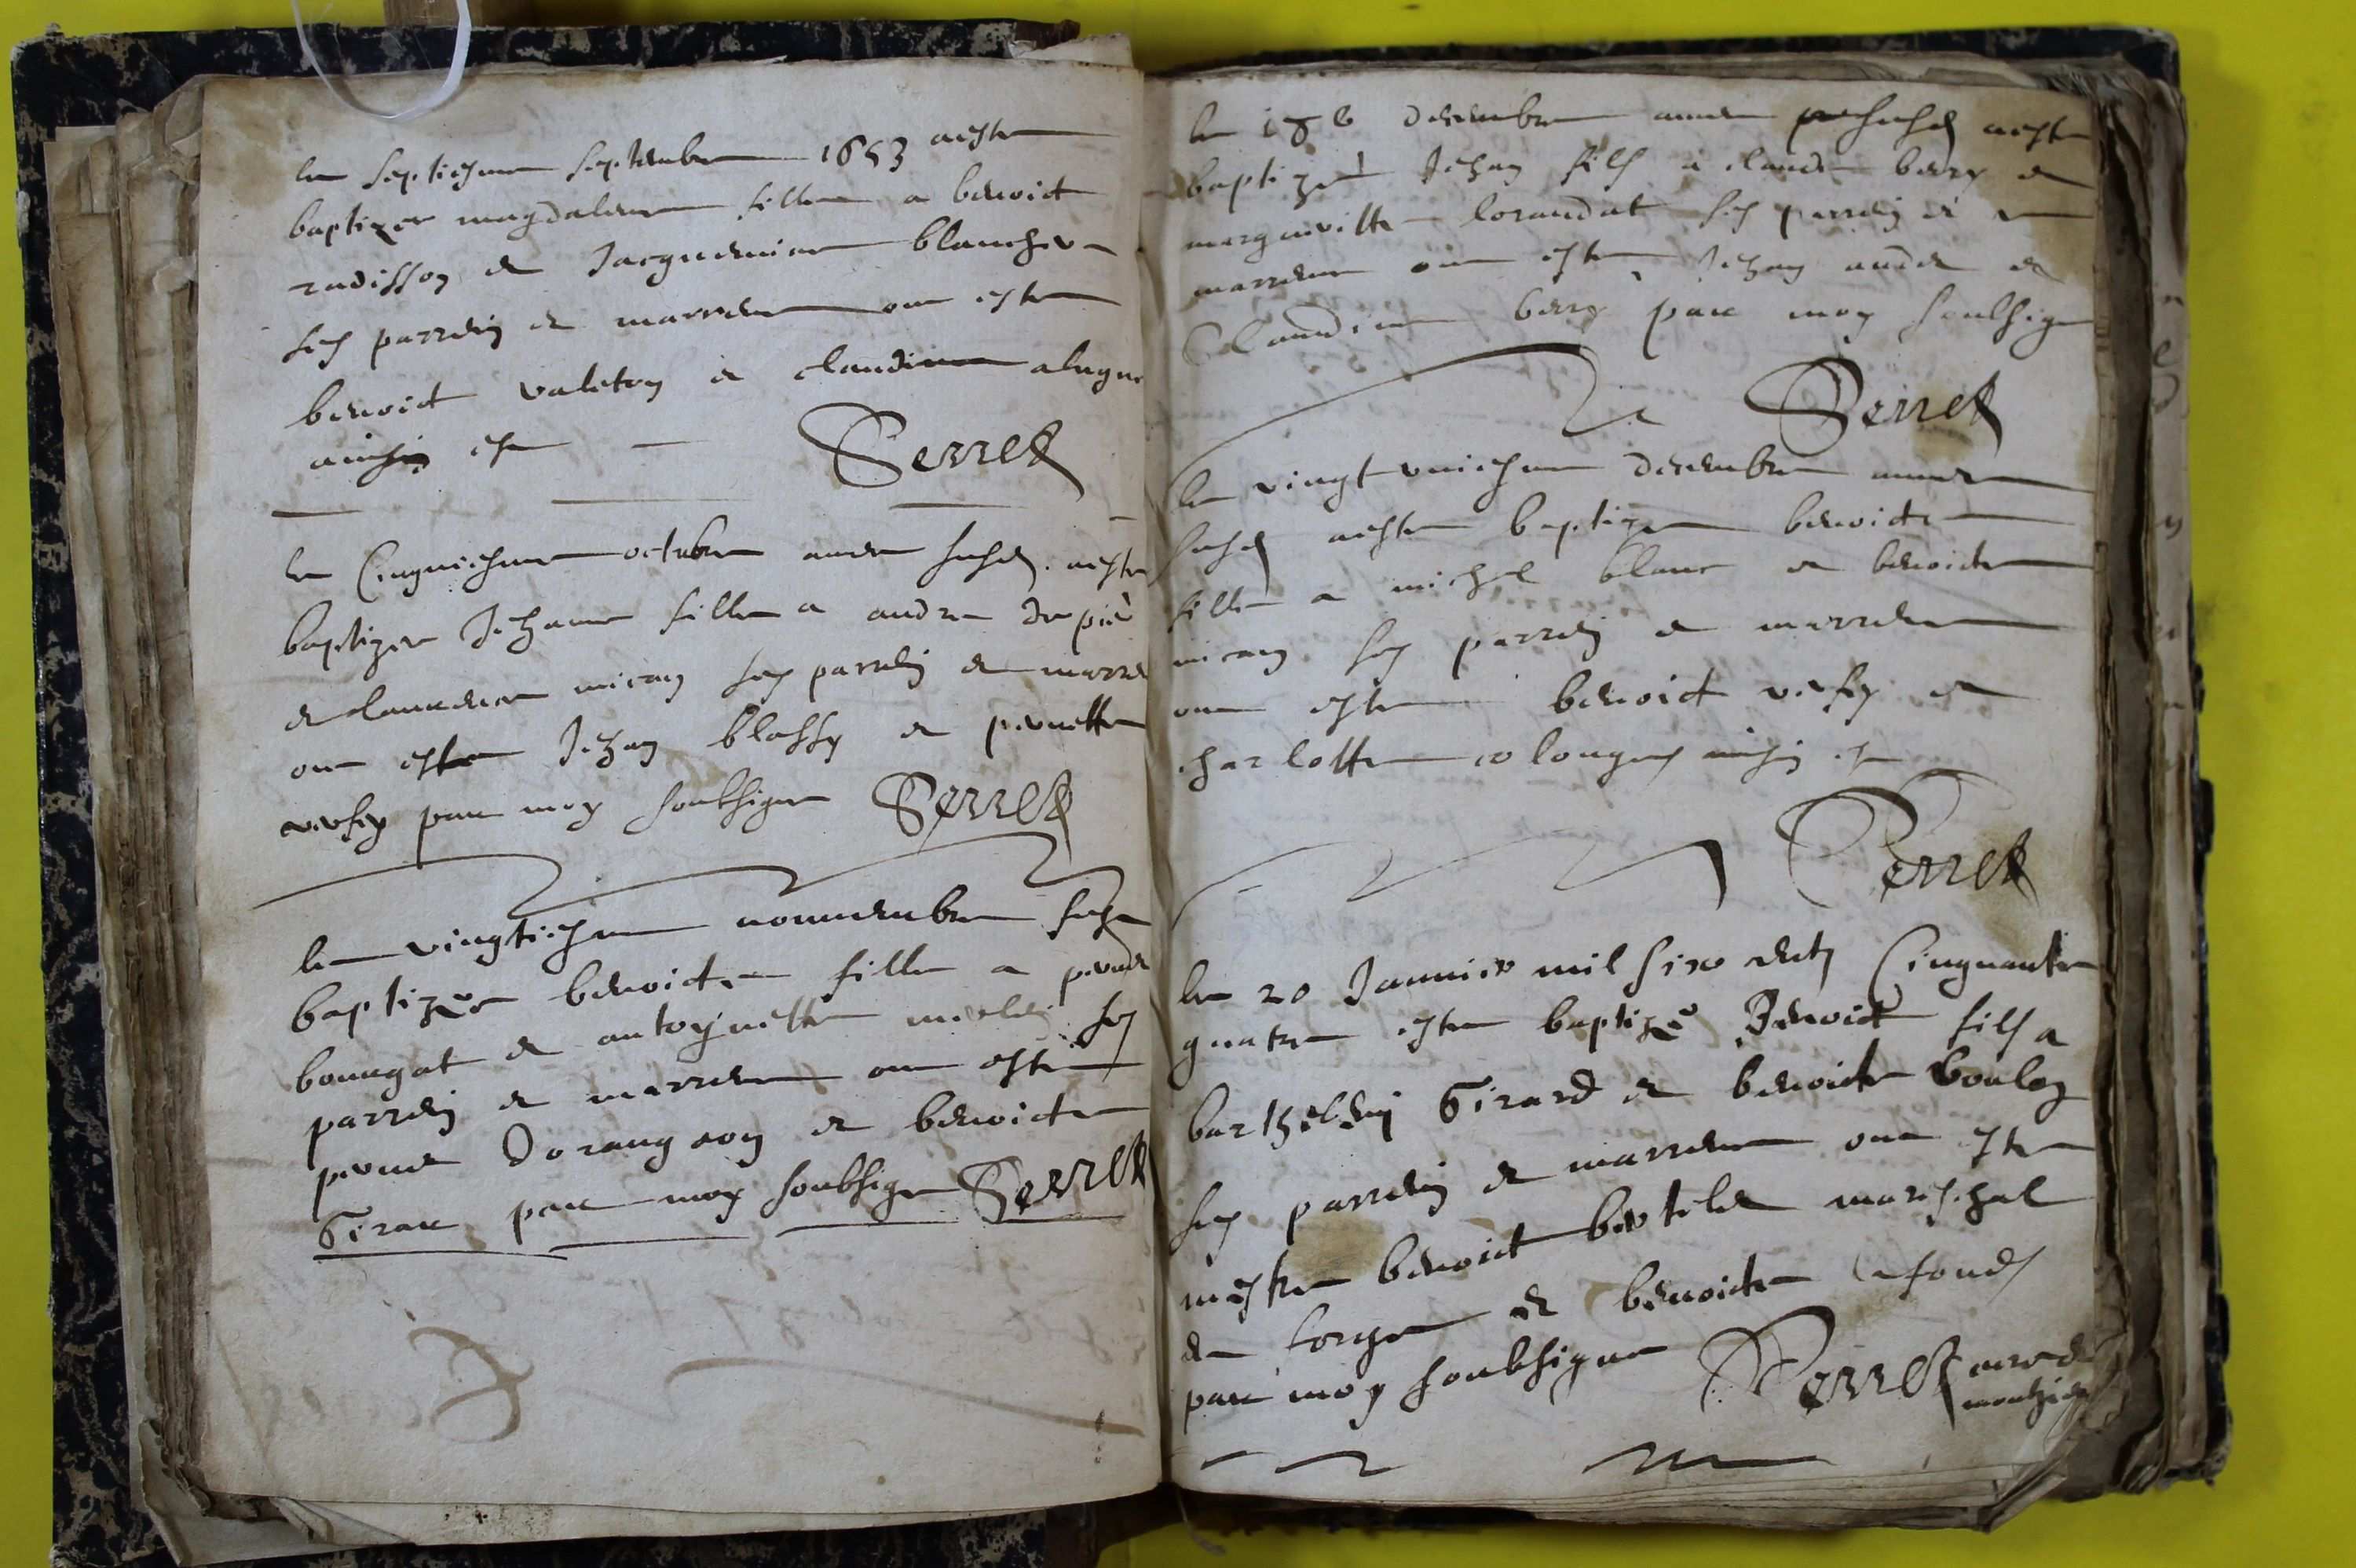 le septiesme septembre 1653 a este
baptizee magdaleine fille a benoict
radisson et Jacquemine blanchon
ses parrein et marreine ont este
benoict valeton et claudine
ainsin est Perret
le Cinquiesme octobre annee susd. a este
baptizee Jehanne fille a andre
et micam ses parrein et marreine
ont este Jehan blassy et pernette
versey par moy soubsigne Perret
le vingtiesme novembre
baptizee benoicte fille a pierre
bonnugat et antoynette ses
parrein et marreine ont este
pierre et benoicte
Girau par moy soubsigne Perret
le 18e decembre annee susd. a este
baptizé Jehan fils a claude bery et
margueritte lorandat ses parrein et
marreine ont este Jehan et
Claudine bery par moy soubsigne
Perret
le vingt uniesme decembre annee
susd. a este baptizee benoicte
fille a michel blanc et benoicte
micam ses parrein et marreine
ont este benoict versey et
charlotte colonges ainsin est
Perret
le 20 Janvier mil six cents Cinquante
quatre este baptizé Benoict fils a
barthelemy Girard et benoicte
ses parrein et marreine ont este
mestre benoict bertelet mareschal
de forge et benoicte lafond
par moy soubsigne Perret curé de